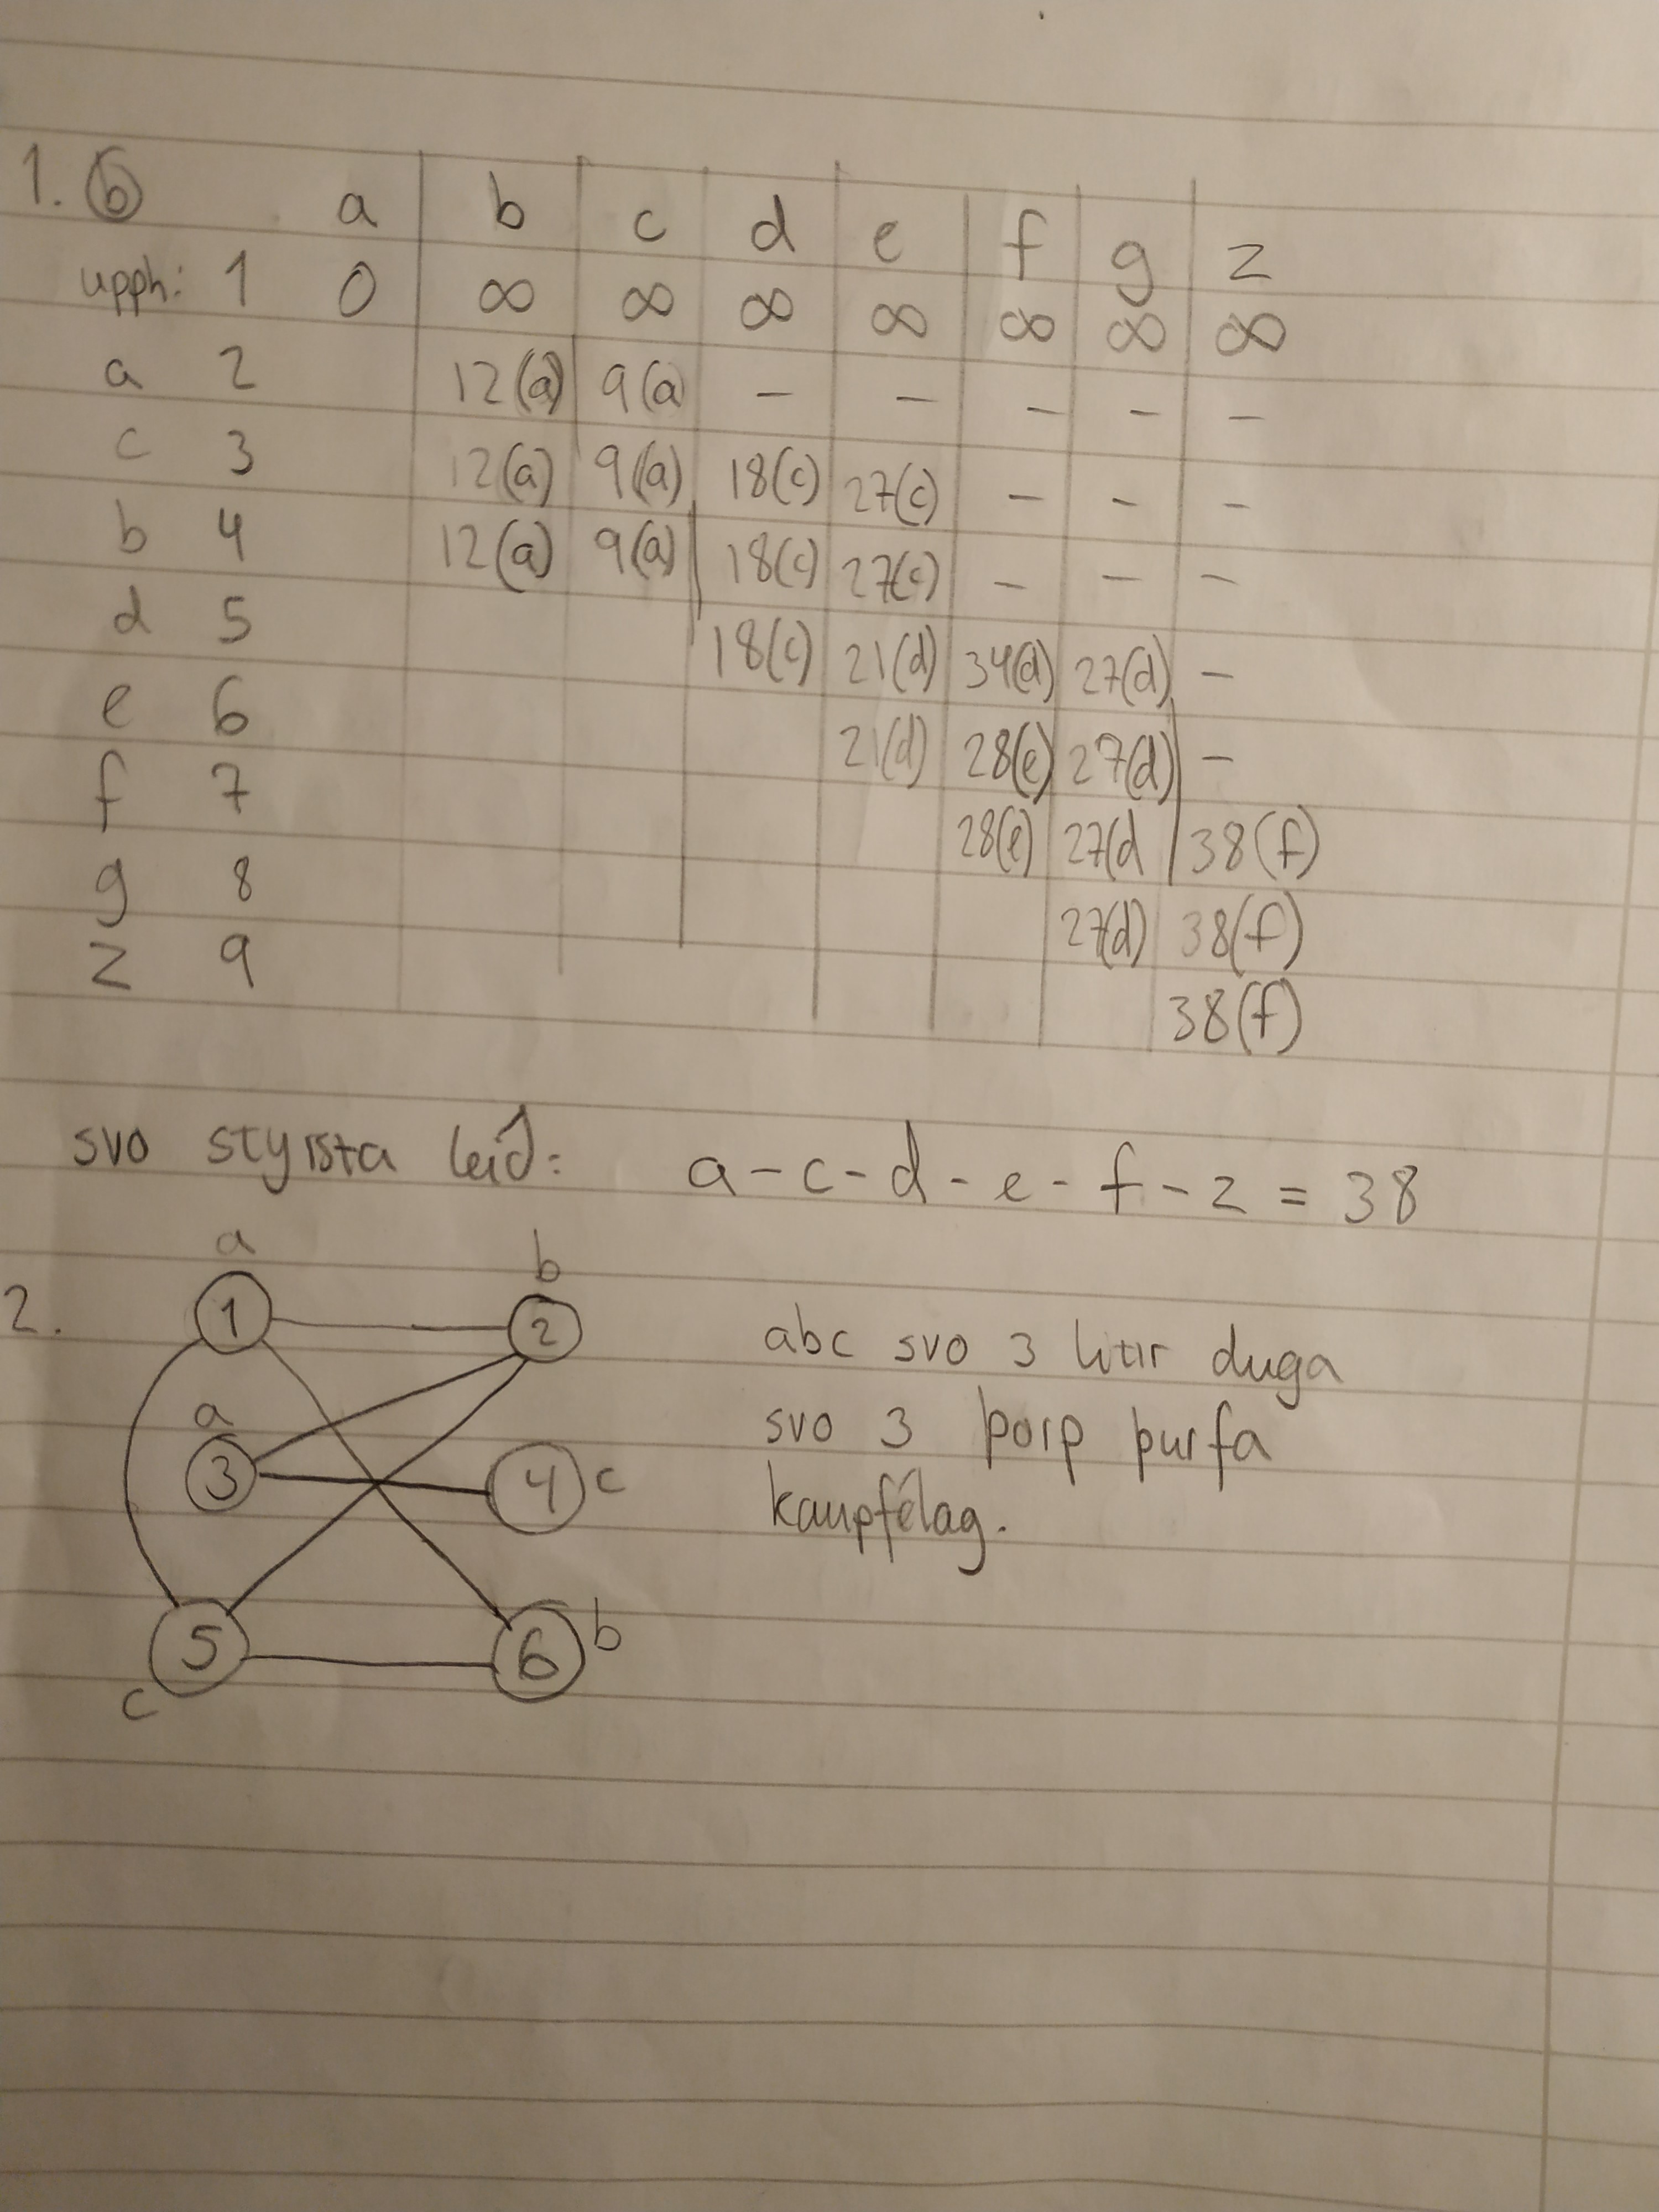 1. b a b c d e f g z
upph: 1 0 ∞ ∞ ∞ ∞ ∞ ∞ ∞
a 2 12(a) 9(a - - - - -
c 3 12(a) 9(a) 18(c) 27(c) - - -
b 4 12(a) 9(a) 18(c) 27(c) - - -
d 5 18(c) 21(d) 34(d) 27(d) -
e 6 21(d) 28(e) 27(d) -
f 7 28(e) 27(d 38(f)
g 8 27(d) 38(f)
z 9 38(f)
svo styista leið: a-c-d-e-f-z = 38
2.
a b
1 2
a
3 4 c
5 6 b
c
abc svo 3 litir duga
svo 3 þorp þurfa
kaupfélag.